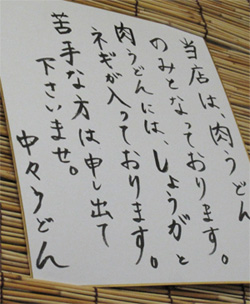 当店は、肉うどん
のみとなっております。
肉うどんには、しょうがと
ネギが入っております。
苦手な方は申し出て
下さいませ。
中々うどん